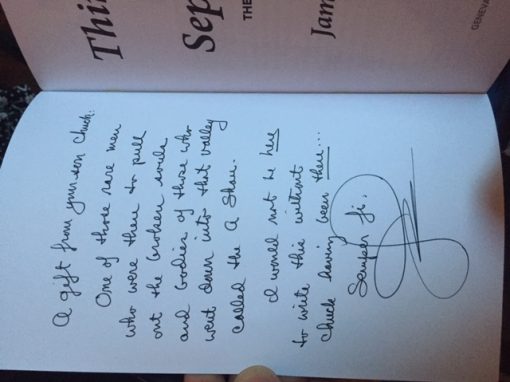 Thi
Sep
THE
Jam
GENEVA
A gift from your son Chuck:
One of those rare men
who were there to pull
out the broken souls
and bodies of those who
went down into that valley
called the A Shau.
I would not be here
to write this without
Chuck having been there...
Semper Fi.